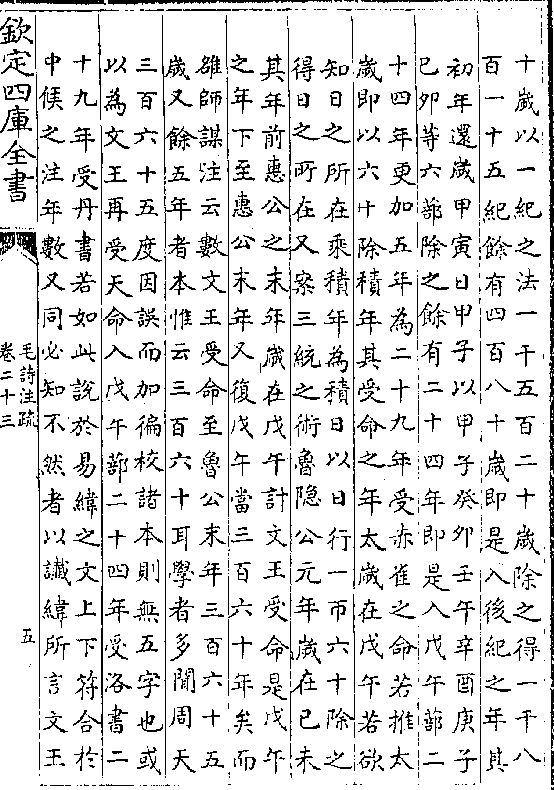 十歲以一紀之法一千五百二十歲除之得一千八
百一十五紀餘有四百八十歲即是入後紀之年其
初年還歲甲寅日甲子以甲子癸卯壬午辛酉庚子
已夘等六蔀除之餘有二十四年即是入戊午蔀二
十四年更加五年為二十九年受赤雀之命若推太
歲即以六十除積年其受命之年太歲在戊午若欲
知日之所在乘積年為積日以日行一帀六十除之
得日之所在又案三統之術魯隐公元年歲在已未
其年前惠公之末年歲在戊午計文王受命是戊午
之年下至惠公末年又復戊午當三百六十年矣而
雒師謀注云數文王受命至魯公末年三百六十五
歲又餘五年者本惟云三百六十耳學者多聞周天
三百六十五度因誤而加徧校諸本則無五字也或
以為文王再受天命入戊午蔀二十四年受洛書二
十九年受丹書若如此說於易緯之文上下符合於
中候之注年數又同必知不然者以讖緯所言文王
欽定四庫全書
毛詩注疏
卷二十三
五